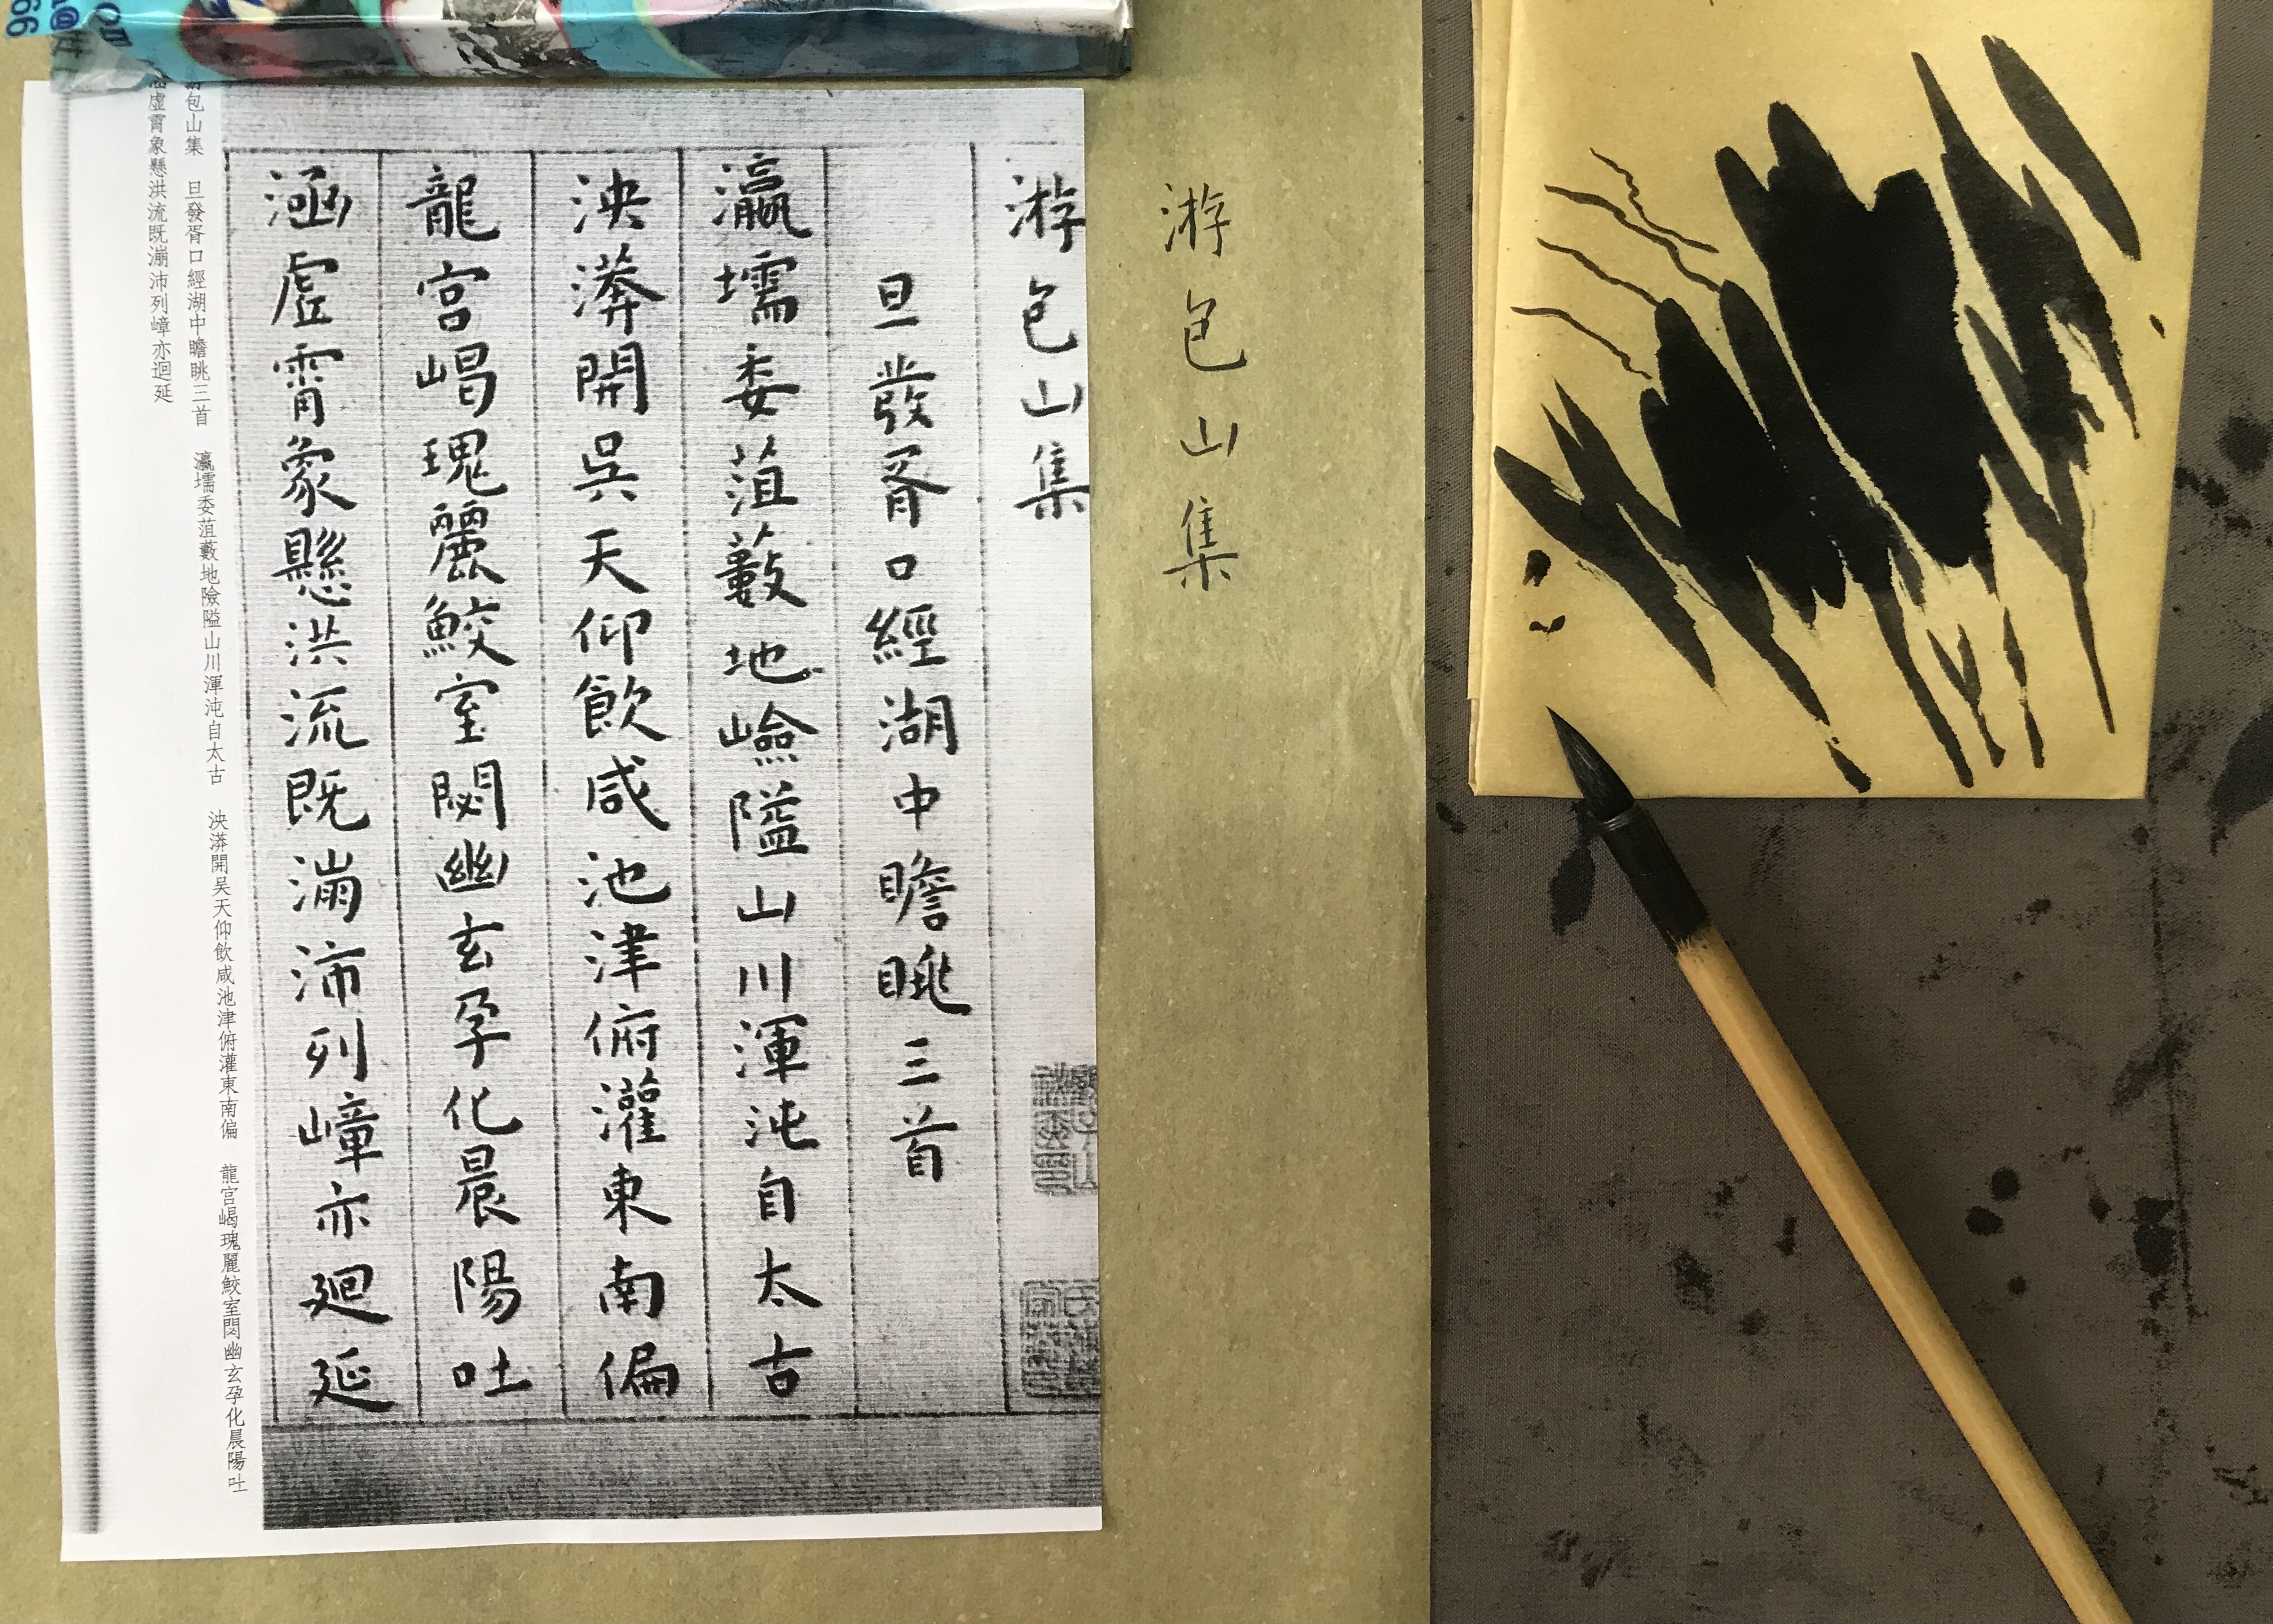 游包山集
游包山集
旦發胥口經湖中瞻眺三首
瀛壖委菹藪地嶮隘山川渾沌自太古
泱漭開吳天仰飲咸池津俯灌東南偏
龍宮崵瑰麗鮫室閟幽玄孕化晨陽吐
涵虛霄象懸洪流既漰沛列嶂亦迴延
包山集 旦發胥口經湖中瞻眺三首 瀛壖委菹藪地險隘山川渾沌自太古 泱漭開吴天仰飲咸池津俯灌東南偏 龍宮崵瑰麗鮫室閟幽玄孕化晨陽吐
虛霄象懸洪流既漰沛列嶂亦迴延